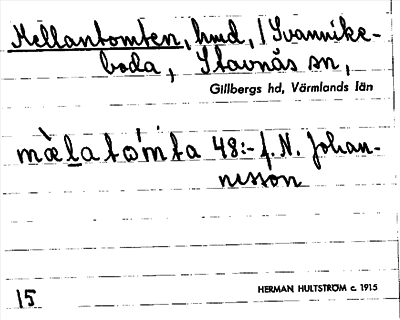 Mellantomten, hmd, / Svannike-
boda, Stavnäs sn,
Gillbergs hd, Värmlands län
mæ̀latómta 48:- f. N. Johan-
nisson
15 HERMAN HULTSTRÖM c. 1915